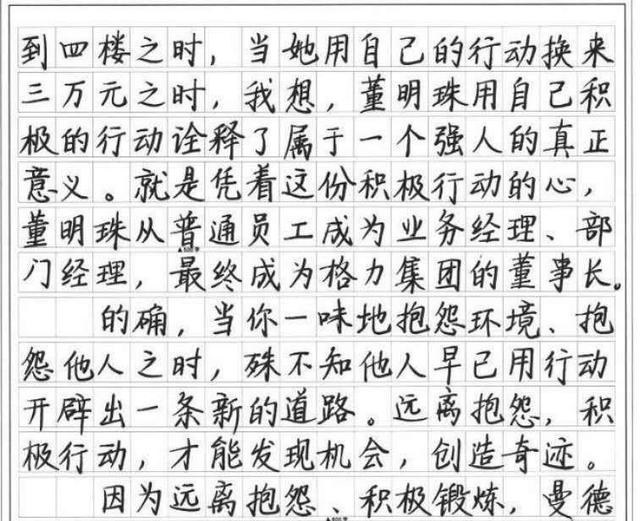 到四楼之时，当她用自己的行动换来
三万元之时，我想，董明珠用自己积
极的行动诠释了属于一个强人的真正
意义。就是凭着这份积极行动的心，
董明珠从普通员工成为业务经理、部
门经理，最终成为格力集团的董事长。
的确，当你一味地抱怨环境、抱
怨他人之时，殊不知他人早已用行动
开辟出一条新的道路。远离抱怨，积
极行动，才能发现机会，创造奇迹。
因为远离抱怨、积极锻炼，曼德